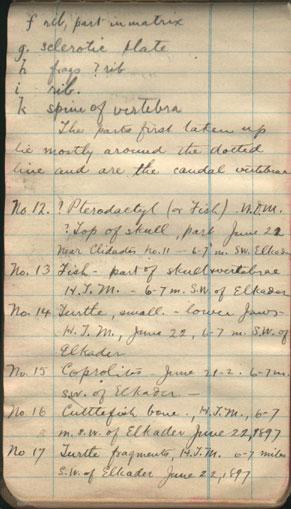 f rib, part in matrix
g. sclerotic plate
h frags ? rib
i rib.
k spine of vertebra
The parts first taken up
lie mostly around the dotted
line and are the caudal vertebrae
No. 12. ? Pterodactyl (or Fish). H.T.M.
? Top of skull, part June 22
Near Clidastes No. 11 - 6-7 m. SW. Elkader
No. 13 Fish - part of skull & vertebrae
H.T.M. - 6-7 m. S.W. of Elkader
No. 14 Turtle, small - lower jaws -
H.T.M., June 22, 6-7 m. S.W. of
Elkader
No. 15 Coprolites - June 21-2. 6-7 m.
S.W. of Elkader -
No. 16 Cuttlefish bone., H.T.M., 6-7
m. s.w. of Elkader June 22, 1897
No 17 Turtle fragments, H.T.M. 6-7 miles
S.W. of Elkader June 22, 1897